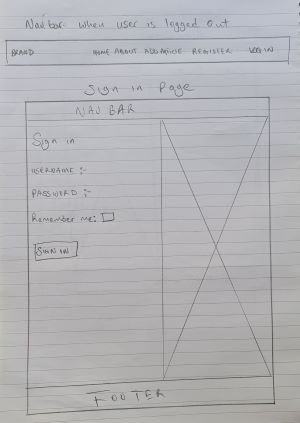 Navbar when user is logged out
BRAND HOME ABOUT ADD ARTICLE REGISTER LOG IN
Sign in Page
NAV BAR
Sign in
USERNAME :-
PASSWORD :-
Remember me:
SIGN IN
FOOTER